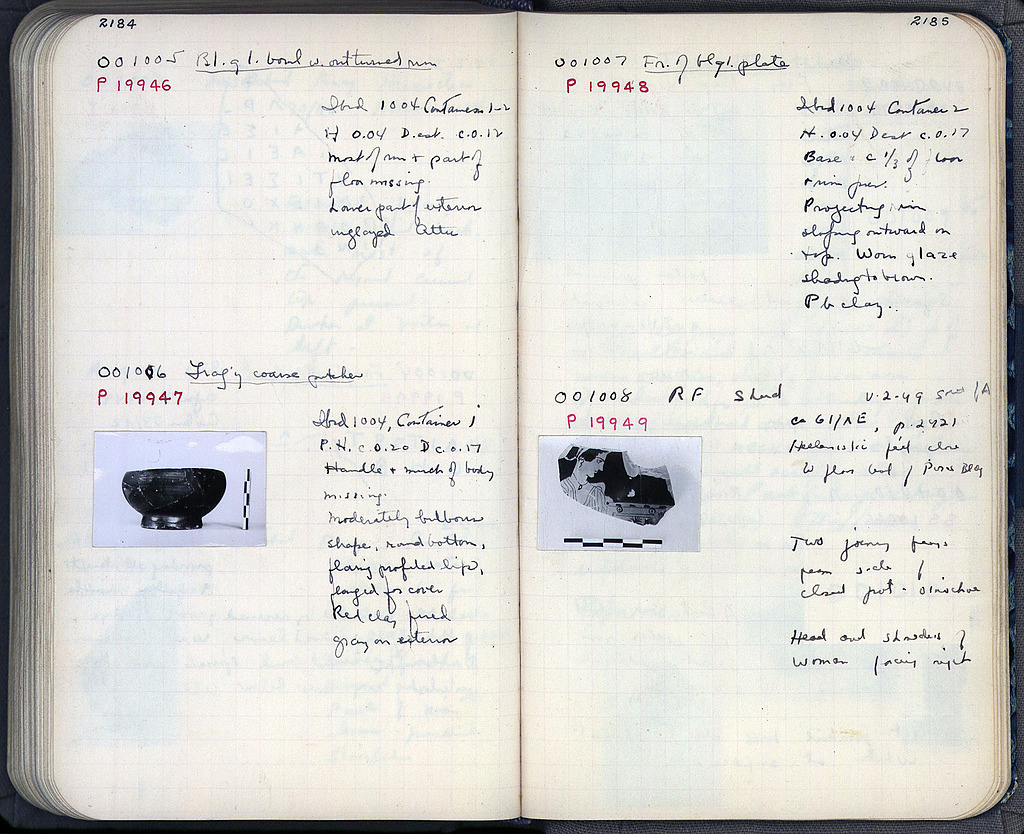 2184
OO1005 Bl. gl. bowl w. outturned rim
P 19946
Ibid 1004 Containers 1-2
H 0.04 D. est. c.0.12
Most of rim + part of
floor missing.
Lower part of exterior
unglazed Attic
OO1006 Frag'y coarse pitcher
P 19947
Ibid 1004, Container 1
P.H. c.0.20 D c.0.17
Handle + much of body
missing.
Moderately bulbous
shape, round bottom,
flaring profiled lip,
flanged for cover
Red clay fired
gray on exterior
2185
OO1007 Fr. of bl.gl. plate
P 19948
Ibid 1004 Container 2
H. 0.04 D est c.0.17
Base + c 1/3 of floor
+ rim pres.
Projecting rim
sloping outward on
top. Worn glaze
shading to brown.
P b clay.
OO1008 RF Sherd
V-2-49
P 19949
ca 61/ΛE, p. 2421
Hellenistic
Two joining frags.
from side of
closed pot - oinochoe
Head and shoulders of
woman facing right